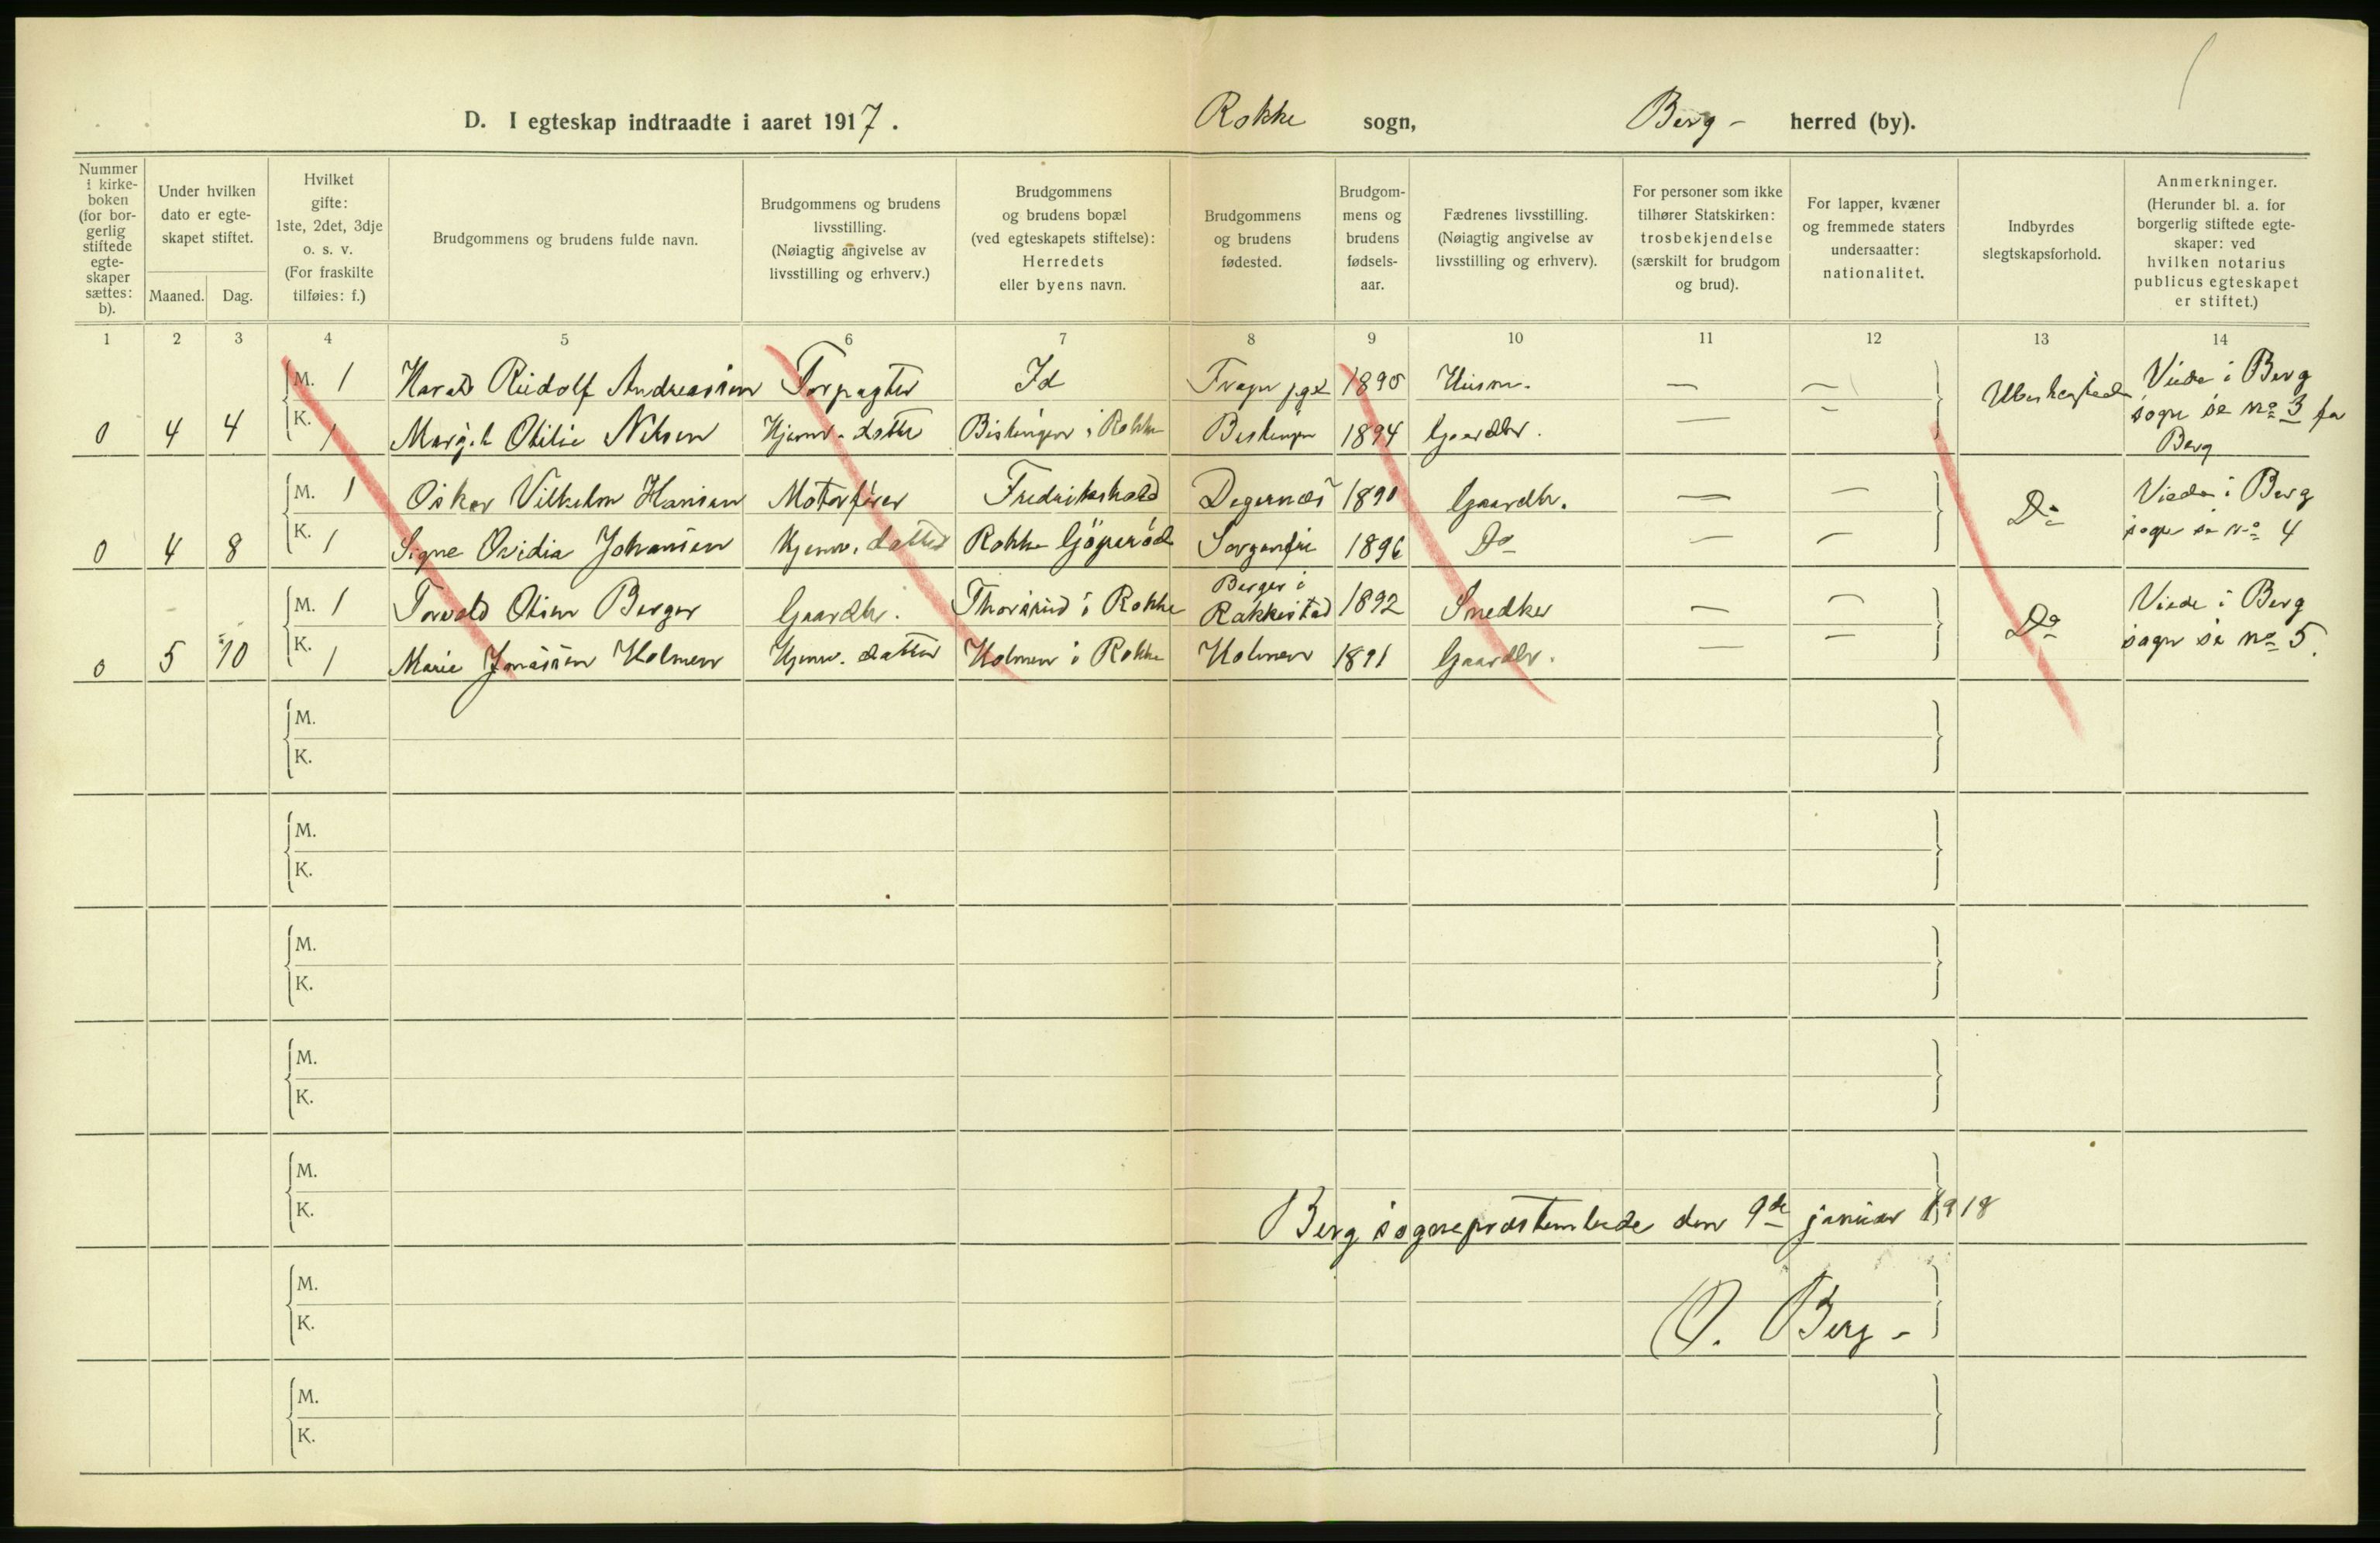 D. I egteskap indtraadte i aaret 1917.
Rokke sogn,
Berg - herred (by).
Nummer
i kirke-
boken
(for bor-
gerlig
stiftede
egte-
skaper
sættes:
b).
Under hvilken
dato er egte-
skapet stiftet.
Maaned. Dag.
Hvilket
gifte:
1ste, 2det, 3dje
o. s. v.
(For fraskilte
tilføies: f.)
Brudgommens og brudens fulde navn.
Brudgommens og brudens
livsstilling.
(Nøiagtig angivelse av
livsstilling og erhverv.)
Brudgommens
og brudens bopæl
(ved egteskapets stiftelse):
Herredets
eller byens navn.
Brudgommens
og brudens
fødested.
Brudgom-
mens og
brudens
fødsels-
aar.
Fædrenes livsstilling.
(Nøiagtig angivelse av
livsstilling og erhverv).
For personer som ikke
tilhører Statskirken:
trosbekjendelse
(særskilt for brudgom
og brud).
For lapper, kvæner
og fremmede staters
undersaatter:
nationalitet.
Indbyrdes
slegtskapsforhold.
Anmerkninger.
(Herunder bl. a. for
borgerlig stiftede egte-
skaper: ved
hvilken notarius
publicus egteskapet
er stiftet.)
1 2 3 4 5 6 7 8 9 10 11 12 13 14
M. 1 Harald Rudolf Andreassen Forpagter Id 1890 Husm. — — Viede i Berg
sogn se No 3 for
Berg
0 4 4 K. 1 Otilie Nilsen Hjemv. datter i Rokke 1894 Gaardbr. — —
M. 1 Oskar Vilhelm Hansen Motorfører Fredrikshald Degernes 1890 Gaardbr. — — Do Viede i Berg
sogn se No 4
0 4 8 K. 1 Signe Ovidia Johansen Hjemv. datter Rokke Sorgenfri 1896 Do — —
M. 1 Torvald Olsen Berger Gaardbr. Thorsrud i Rokke Berger i
Rakkestad 1892 Snedker — — Do Viede i Berg
sogn se No 5.
0 5 10 K. 1 Marie Jonassen Holmen Hjemv. datter Holmen i Rokke Holmen 1891 Gaardbr. — —
M.
K.
M.
K.
M.
K.
M.
K.
M.
K.
Berg sogneprestembede den 9de januar 1918
M.
K.
O. Berg -
M.
K.